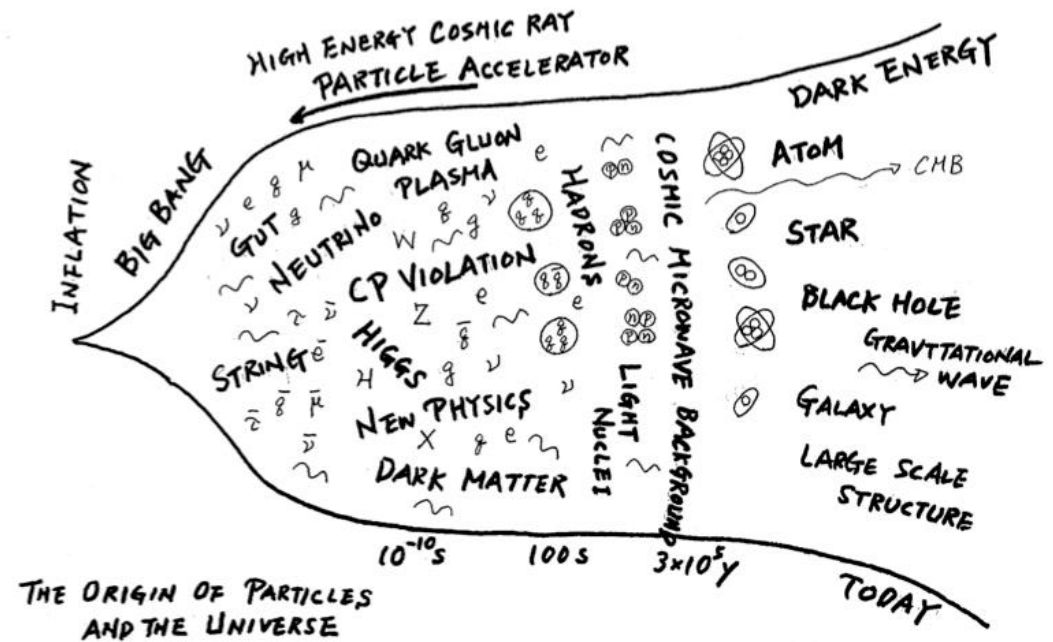 HIGH ENERGY COSMIC RAY
PARTICLE ACCELERATOR
DARK ENERGY
INFLATION
BIG BANG
ν e q μ
GUT g
NEUTRINO
ν
τ ν̄
STRING ē
τ̄ q̄ μ̄
ν̄
QUARK GLUON
PLASMA
e
q ν
W g
q q
q
CP VIOLATION
Z e
q q̄
q̄ e
HIGGS
H g ν
q̄
q̄ q̄
NEW PHYSICS
ν
X g e
DARK MATTER
HADRONS
p n
p
p n
p
n
n p
p n
LIGHT
NUCLEI
COSMIC MICROWAVE BACKGROUND
ATOM
CMB
STAR
BLACK HOLE
GRAVITATIONAL
WAVE
GALAXY
LARGE SCALE
STRUCTURE
10⁻¹⁰s
100s
3×10⁵y
TODAY
THE ORIGIN OF PARTICLES
AND THE UNIVERSE